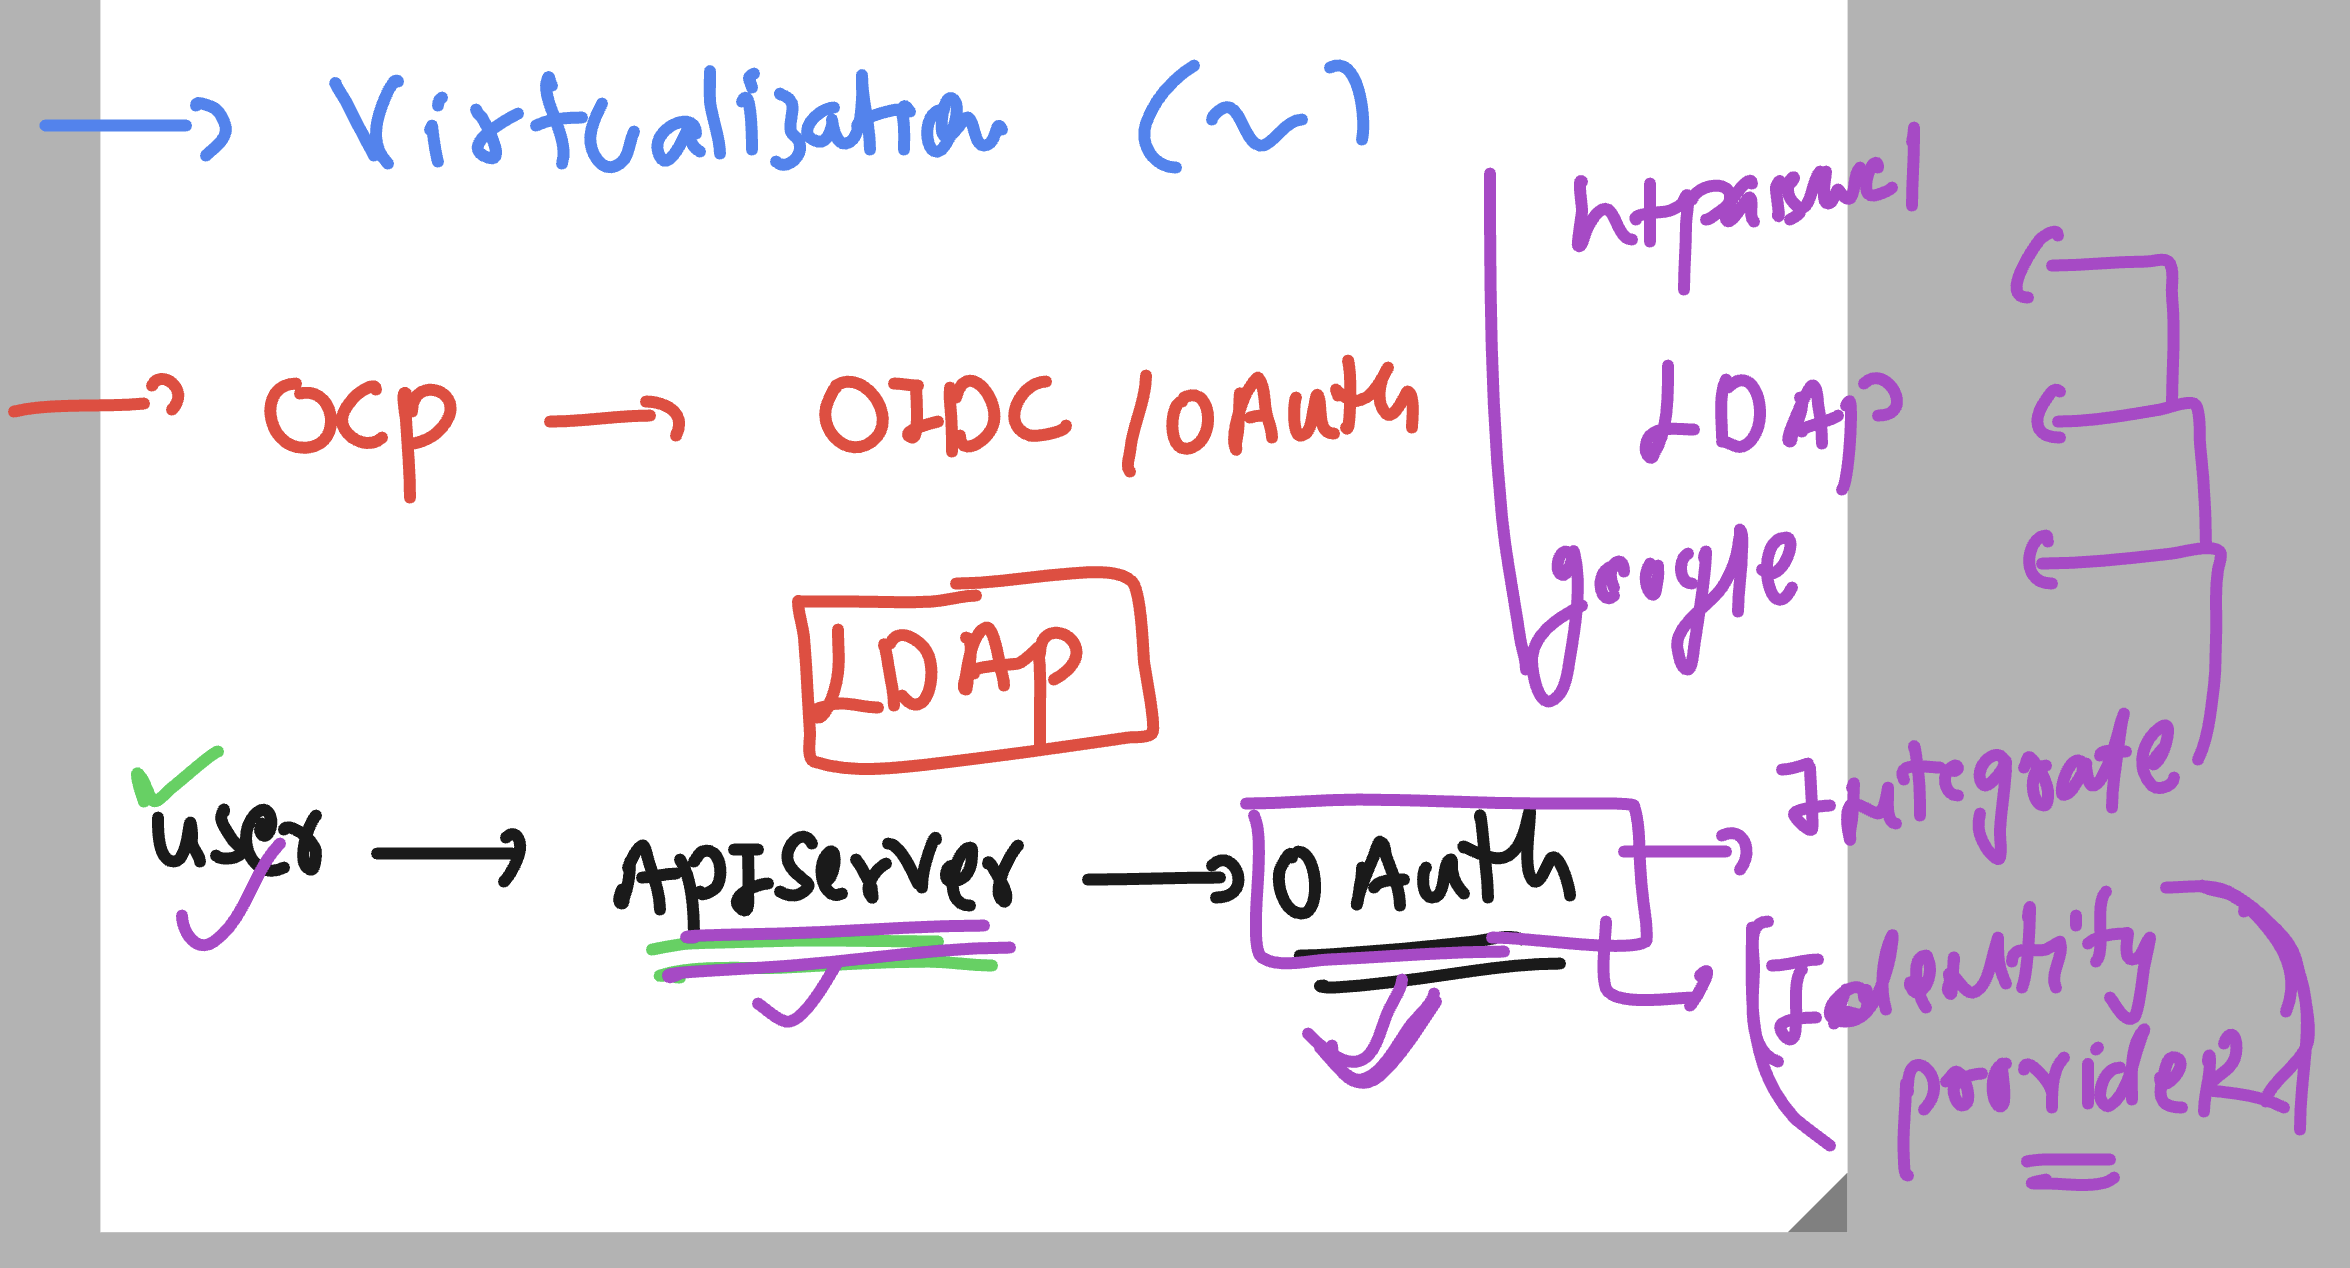 → Virtualization (~)
htpasswd
→ OCP → OIDC / OAuth
LDAP
google
LDAP
user → APIServer → OAuth → Integrate
Identity
provider